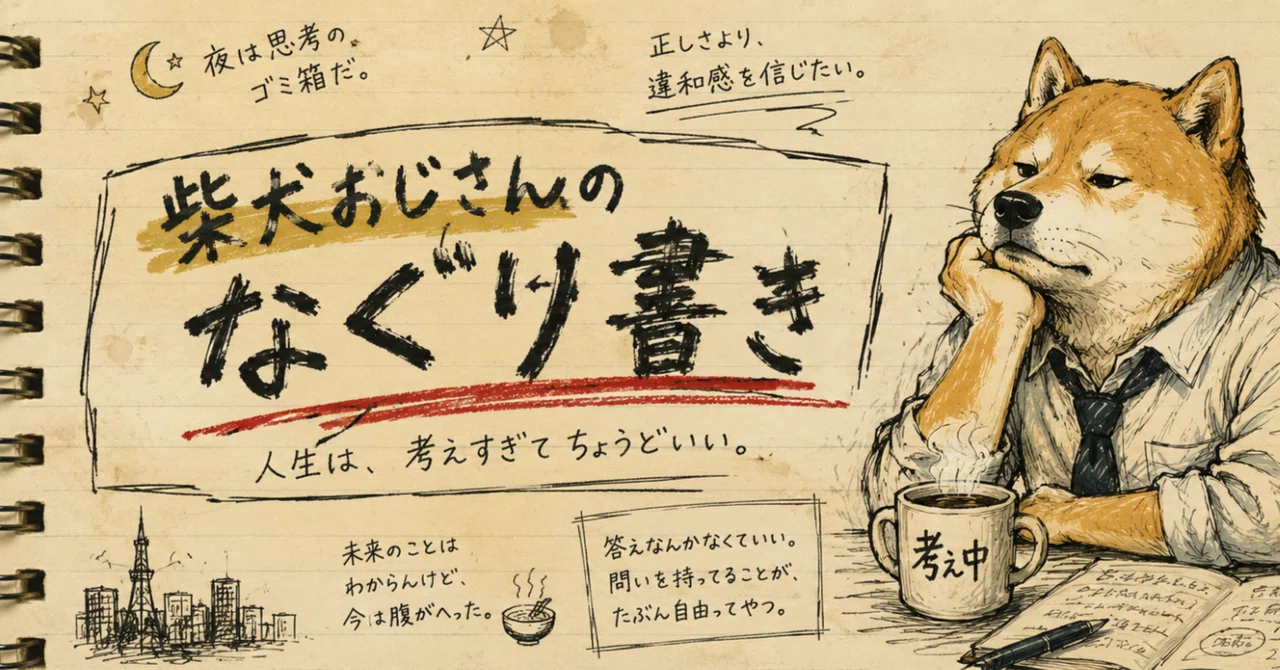 夜は思考の
ゴミ箱だ。
正しさより、
違和感を信じたい。
柴犬おじさんの
なぐり書き
人生は、考えすぎてちょうどいい。
未来のことは
わからんけど、
今は腹がへった。
答えなんかなくていい。
問いを持ってることが、
たぶん自由ってやつ。
考え中